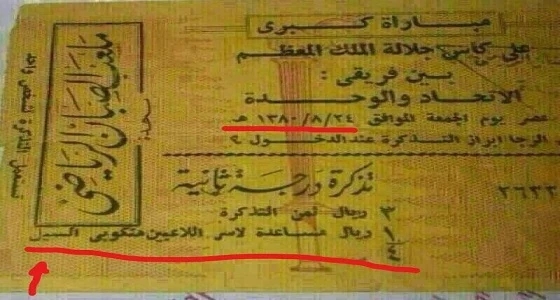 مباراة كبرى
على كاس جلالة الملك المعظم
بين فريقى :
الاتحاد والوحدة
عصر يوم الجمعة الموافق ٢٤/٨/١٣٨٠ هـ
الرجا ابراز التذكرة عند الدخول
تذكرة درجة ثانية
٣ ريال ثمن التذكرة
١ ريال مساعدة لاسر اللاعبين منكوبى السيل
٤
ملعب الصبان الرياضى
بجدة
تستعمل التذكرة لشخص واحد